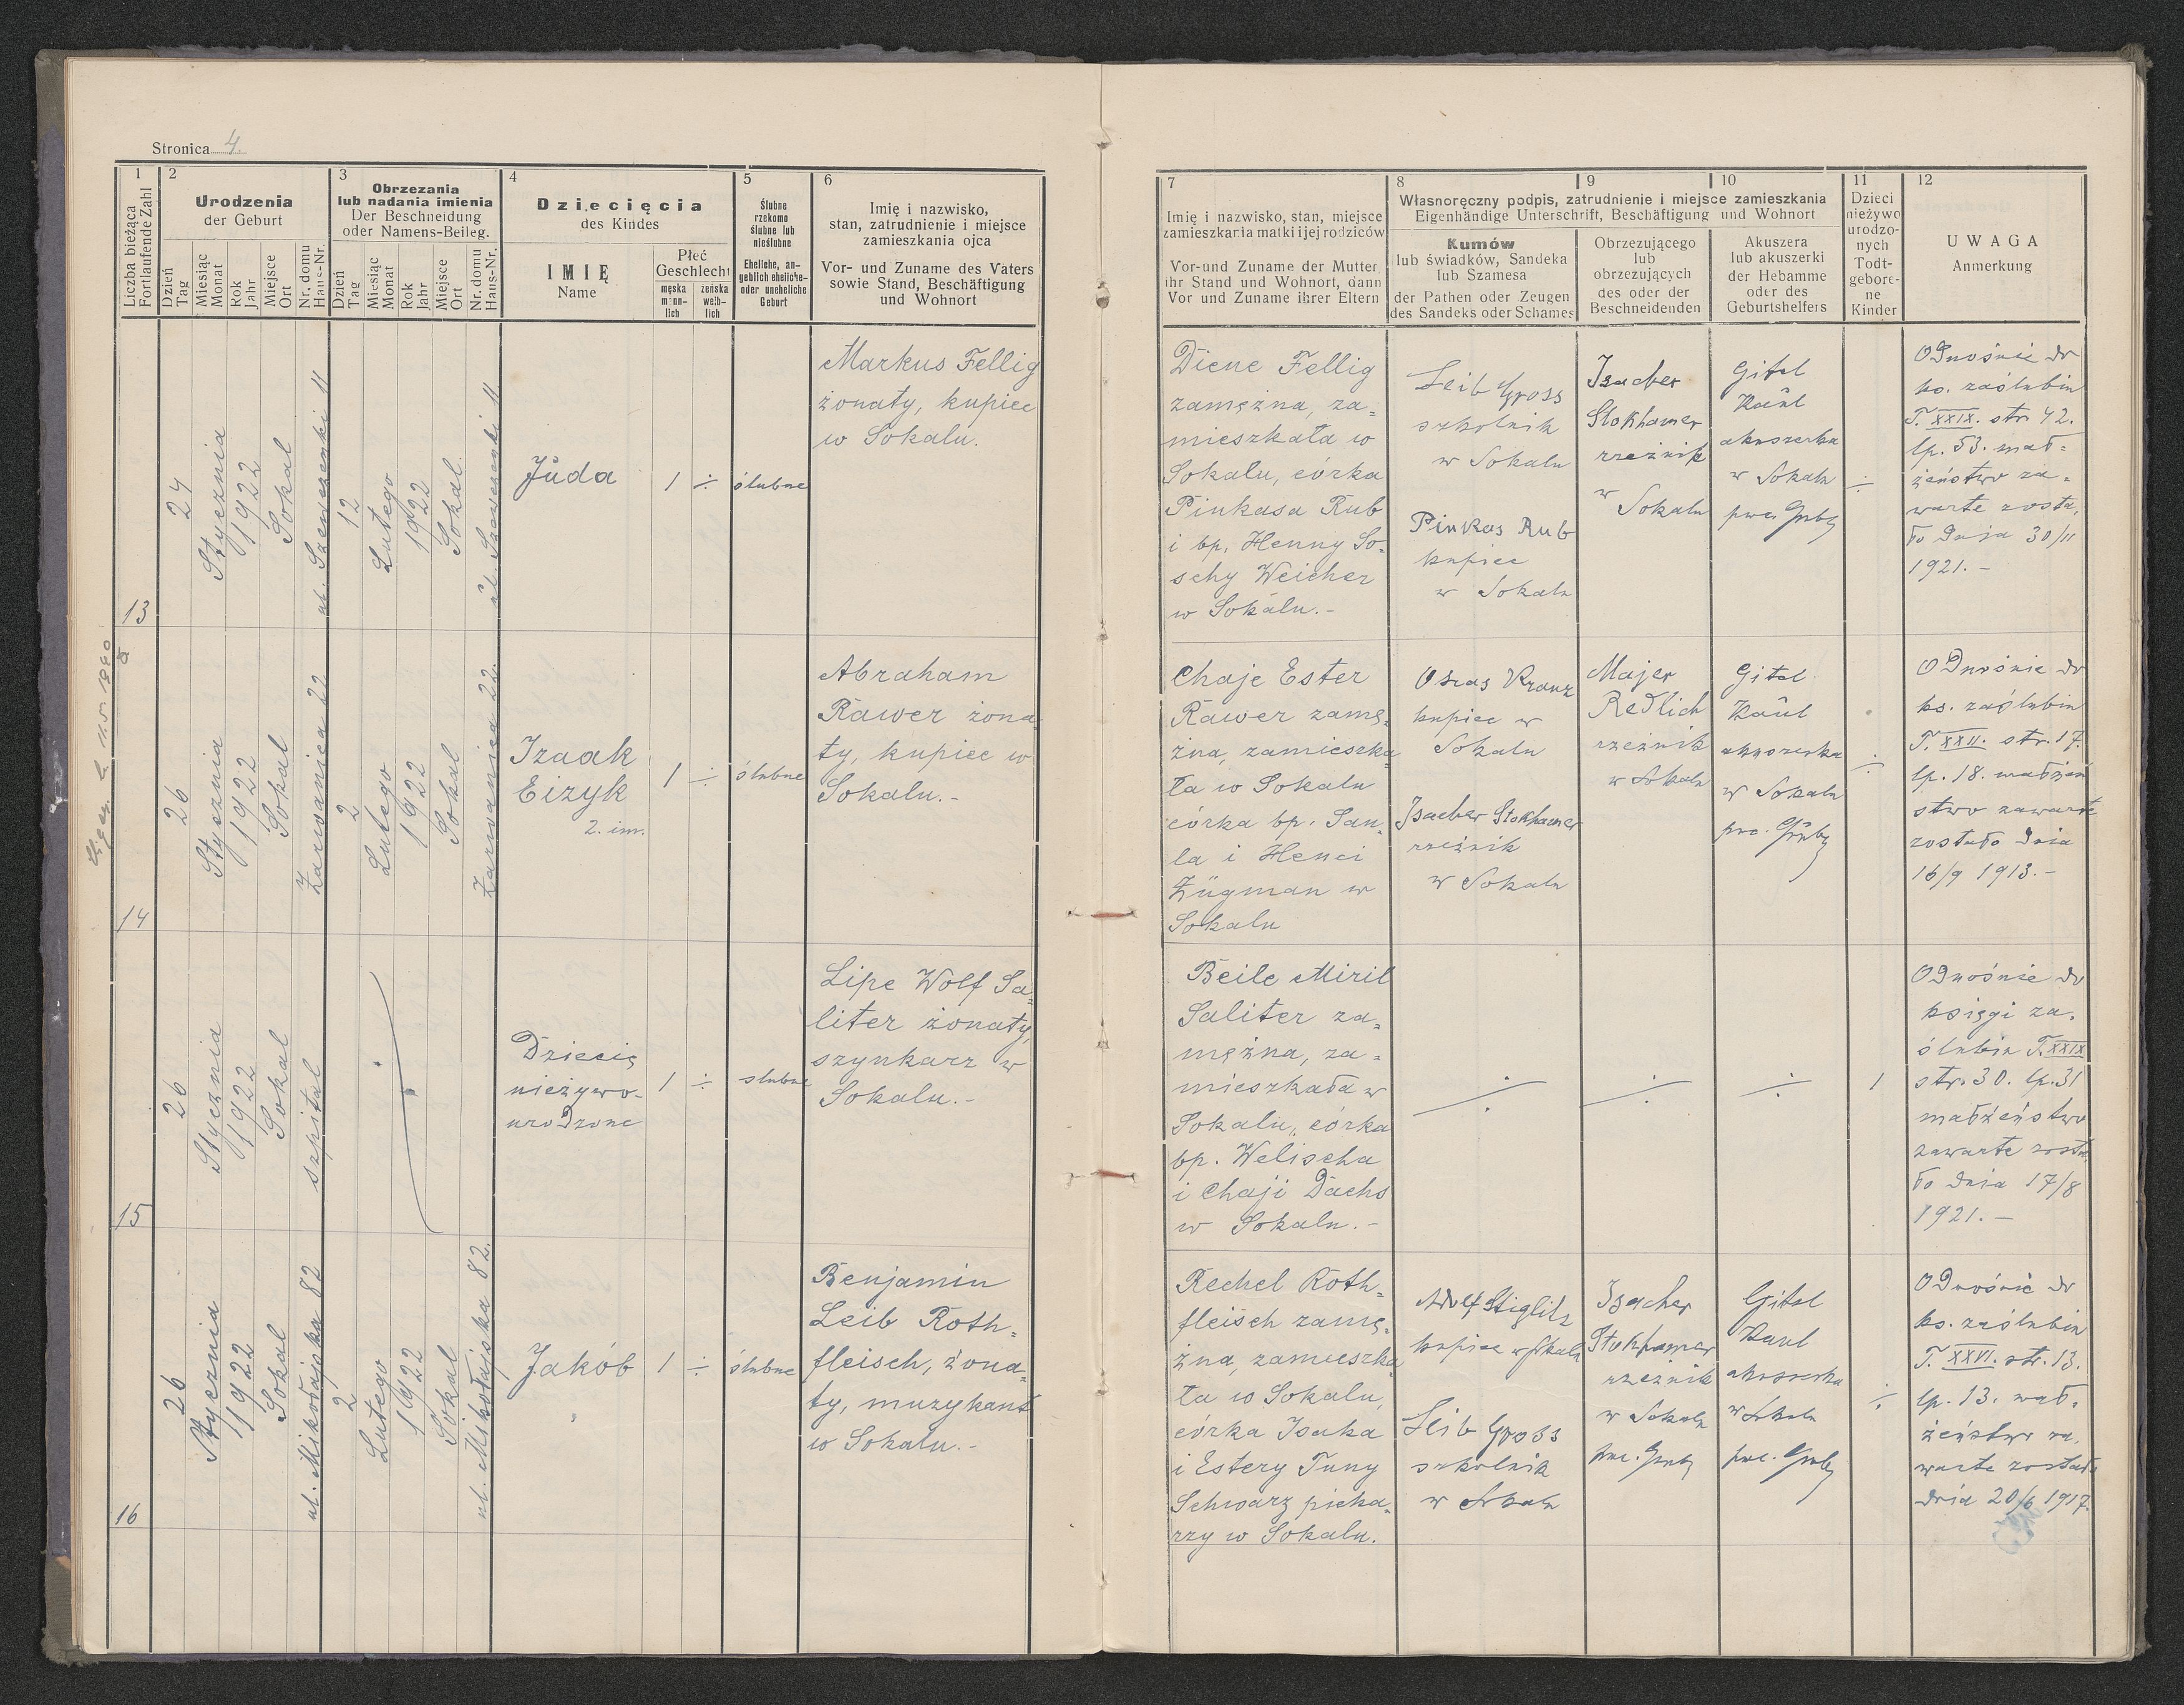 Stronica 4.
1
Liczba bieżąca
Fortlaufende Zahl
2
Urodzenia
der Geburt
Dzień
Tag
Miesiąc
Monat
Rok
Jahr
Miejsce
Ort
Nr. domu
Haus-Nr.
3
Obrzezania
lub nadania imienia
Der Beschneidung
oder Namens-Beileg.
Dzień
Tag
Miesiąc
Monat
Rok
Jahr
Miejsce
Ort
Nr. domu
Haus-Nr.
4
Dziecięcia
des Kindes
IMIĘ
Name
Płeć
Geschlecht
męska
männ-
lich
żeńska
weib-
lich
5
Ślubne
rzekomo
ślubne lub
nieślubne
Eheliche, an-
geblich eheliche-
oder uneheliche
Geburt
6
Imię i nazwisko,
stan, zatrudnienie i miejsce
zamieszkania ojca
Vor- und Zuname des Vaters
sowie Stand, Beschäftigung
und Wohnort
7
Imię i nazwisko, stan, miejsce
zamieszkania matki i jej rodziców
Vor-und Zuname der Mutter
ihr Stand und Wohnort, dann
Vor und Zuname ihrer Eltern
8
9
10
Własnoręczny podpis, zatrudnienie i miejsce zamieszkania
Eigenhändige Unterschrift, Beschäftigung und Wohnort
Kumów
lub świadków, Sandeka
lub Szamesa
der Pathen oder Zeugen
des Sandeks oder Schames
Obrzezującego
lub
obrzezujących
des oder der
Beschneidenden
Akuszera
lub akuszerki
der Hebamme
oder des
Geburtshelfers
11
Dzieci
nieżywo
urodzo-
nych
Todt-
gebore-
ne
Kinder
12
UWAGA
Anmerkung
13
24
Stycznia
1922
Sokal
ul. Szewczenki 11
12
Lutego
1922
Sokal
ul. Szewczenki 11
Juda
1
÷
ślubne
Markus Fellig
żonaty, kupiec
w Sokalu.
Diene Fellig
zamężna, za-
mieszkała w
Sokalu, córka
Pinkasa Rub
i bp. Henny So-
schy Weicher
w Sokalu.-
Leib Gross
szkolnik
w Sokalu
Pinkas Rub
kupiec
w Sokalu
Isacher
Stokhamer
rzeźnik
w
Sokalu
Gitel
Kaul
akuszerka
w Sokalu
÷
Odnośnie do
ks. zaślubin
T. XXIX. str. 42.
lp. 53. mał-
żeństwo za-
warte zosta-
ło dnia 30/11
1921.-
14
26
Stycznia
1922
Sokal
Żarwanica 22
2
Lutego
1922
Sokal
Żarwanica 22.
Izaak
Eizyk
2. im.
1
÷
ślubne
Abraham
Rawer żona-
ty, kupiec w
Sokalu.-
Chaje Ester
Rawer zamę-
żna, zamieszka-
ła w Sokalu
córka bp. San-
la i Henci
Zügman w
Sokalu
Osias Kranz
kupiec w
Sokalu
Isacher Stokhamer
rzeźnik
w Sokalu
Majer
Redlich
rzeźnik
w Sokalu
Gitel
Kaul
akuszerka
w Sokalu
÷
Odnośnie do
ks. zaślubin
T. XXII. str. 17.
lp. 18. małżeń
stwo zawarte
zostało dnia
16/9 1913.-
15
26
Stycznia
1922
Sokal
szpital
Dziecię
nieżywo-
urodzone
1
÷
ślubne
Lipe Wolf Sa-
liter żonaty,
szynkarz w
Sokalu.-
Beile Miril
Saliter za-
mężna, za-
mieszkała w
Sokalu, córka
bp. Welischa
i Chaji Dachs
w Sokalu.-
÷
÷
÷
1
Odnośnie do
księgi za-
ślubin T. XXIX
str. 30. lp. 31
małżeństwo
zawarte zosta-
ło dnia 17/8
1921.-
16
26
Stycznia
1922
Sokal
ul. Mikołajska 82
2
Lutego
1922
Sokal
ul. Mikołajska 82.
Jakób
1
÷
ślubne
Benjamin
Leib Roth-
fleisch, żona-
ty, muzykant
w Sokalu.-
Rechel Roth-
fleisch zamę-
żna, zamieszka-
ła w Sokalu,
córka Isaka
i Estery Tuny
Schwarz pieka-
rzy w Sokalu.
Adolf Stiglitz
kupiec w Sokalu
Leib Gross
szkolnik
w Sokalu
Isacher
Stokhamer
rzeźnik
w Sokalu
Gitel
Kaul
akuszerka
w Sokalu
÷
Odnośnie do
ks. zaślubin
T. XXVI. str. 13.
lp. 13. mał-
żeństwo za-
warte zostało
dnia 20/6 1917.